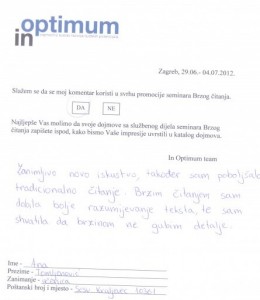 optimum
in
Zagreb, 29.06.- 04.07.2012.
Slažem se da se moj komentar koristi u svrhu promocije seminara Brzog čitanja.
DA NE
Najljepše Vas molimo da svoje dojmove sa službenog dijela seminara Brzog
čitanja zapišete ispod, kako bismo Vaše impresije uvrstili u katalog dojmova.
In Optimum team
Zanimljivo novo iskustvo, također sam poboljšala
tradicionalno čitanje. Brzim čitanjem sam
dobila bolje razumijevanje teksta, te sam
shvatila da brzinom ne gubim detalje.
Ime – Ana
Prezime –
Zanimanje –
Poštanski broj i mjesto –